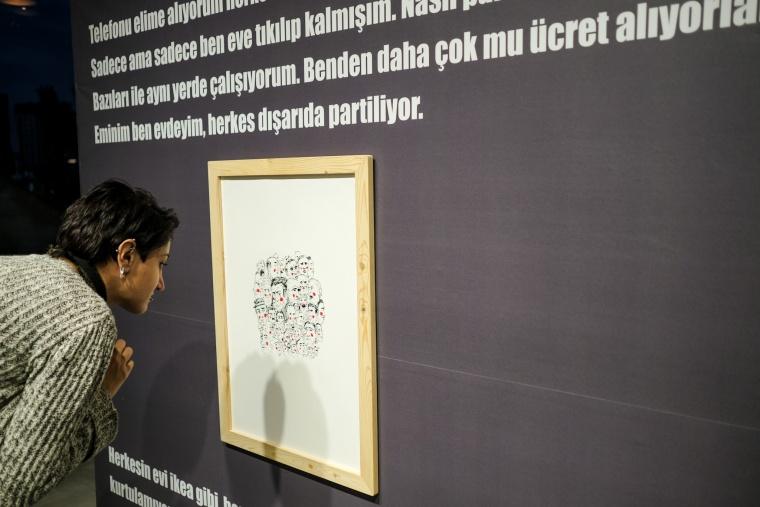 Telefonu elime alıyorum
Sadece ama sadece ben eve tıkılıp kalmışım. Nasıl
Bazıları ile aynı yerde çalışıyorum. Benden daha çok mu ücret alıyorlar
Eminim ben evdeyim, herkes dışarıda partiliyor.
Herkesin evi ikea gibi,